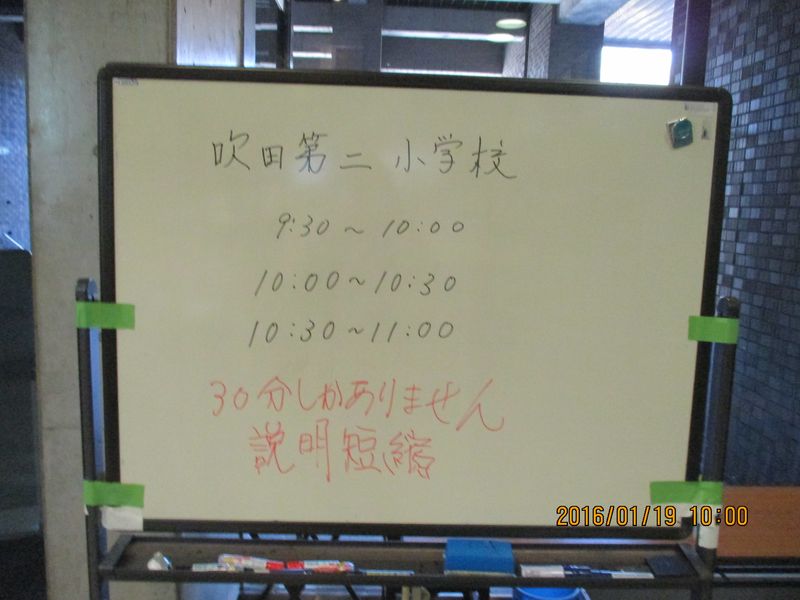 吹田第二小学校
9:30～10:00
10:00～10:30
10:30～11:00
30分しかありません
説明短縮
2016/01/19 10:00